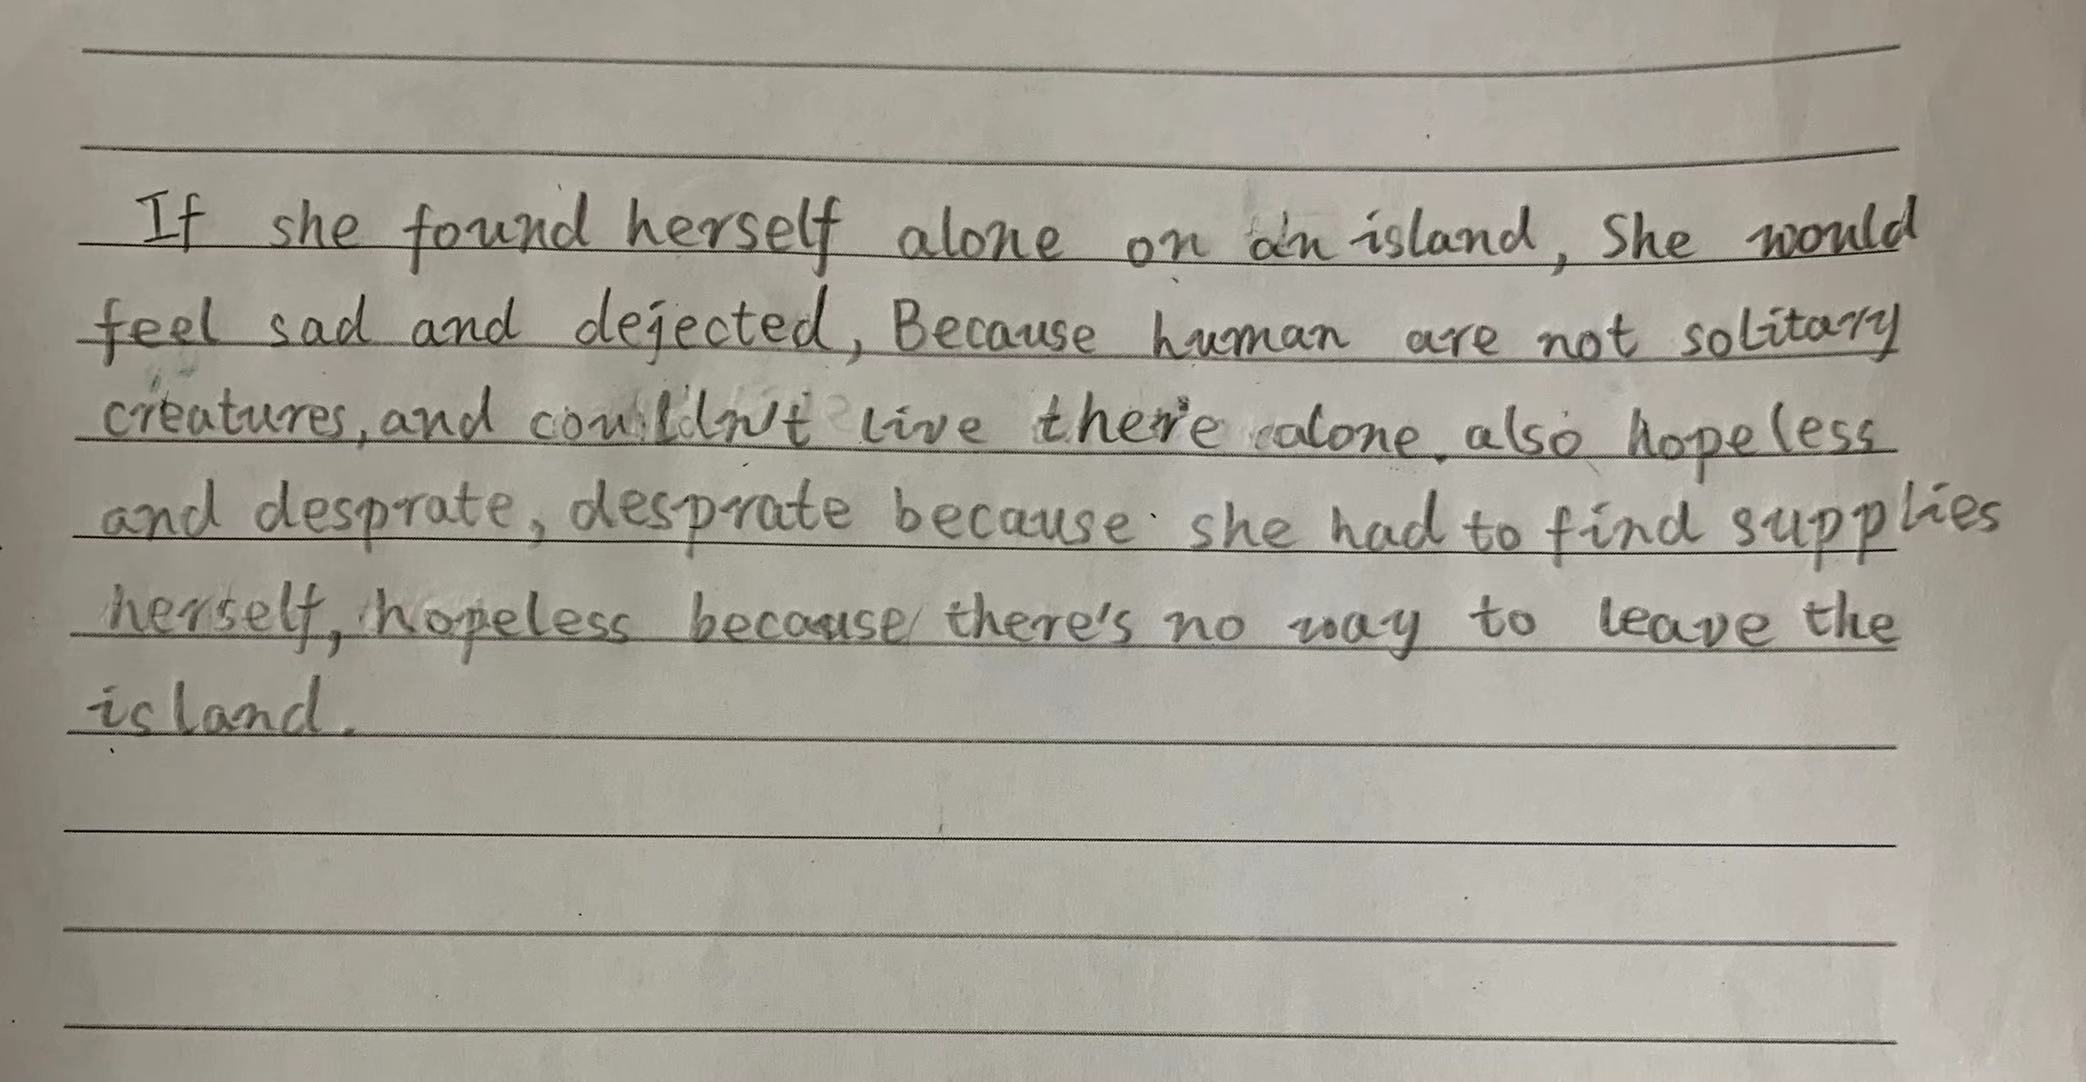 If she found herself alone on an island, She would
feel sad and dejected, Because human are not solitary
creatures, and couldn't live there alone. also hopeless
and desprate, desprate because she had to find supplies
herself, hopeless because there's no way to leave the
island.